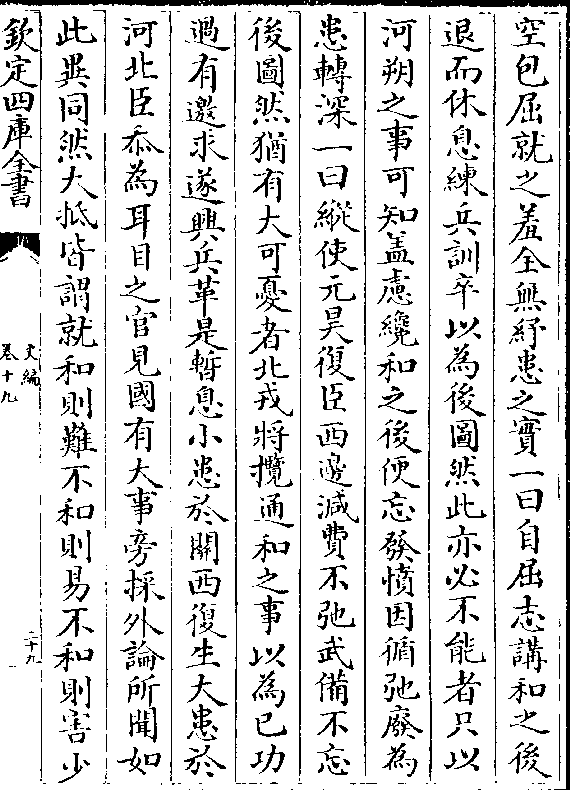 空包屈就之羞全無紓患之實一曰自屈志講和之後
退而休息練兵訓卒以為後圖然此亦必不能者只以
河朔之事可知盖慮纔和之後便忘發憤因循弛廢為
患轉深一曰縱使元昊復臣西邊減費不弛武備不忘
後圖然猶有大可憂者北戎將攬通和之事以為已功
過有邀求遂興兵革是暫息小患於關西復生大患於
河北臣忝為耳目之官見國有大事旁採外論所聞如
此異同然大抵皆謂就和則難不和則易不和則害少
欽定四庫全書
文編
卷十九
二十九